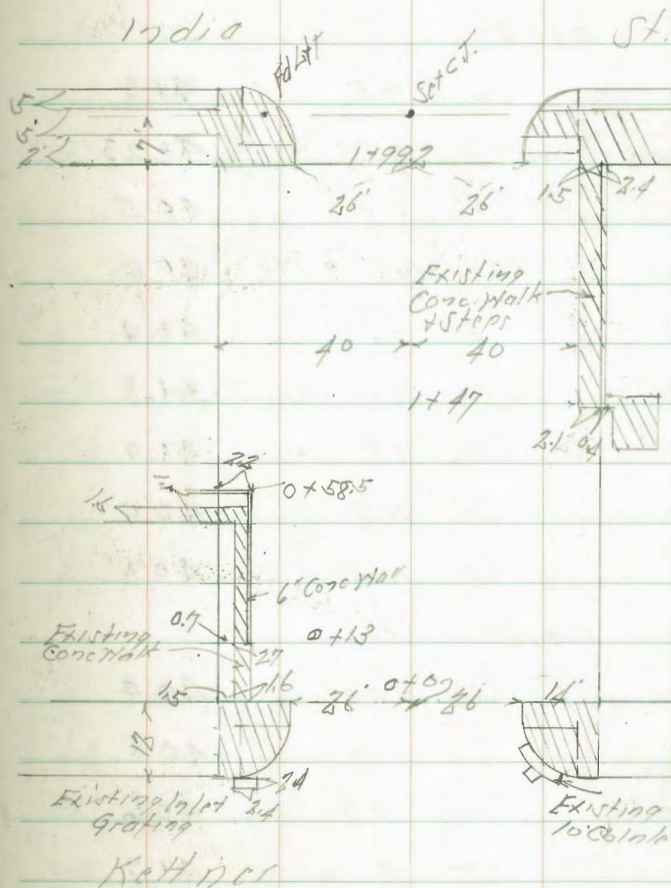 India St.
Set C.J.
5
5'
2'
7'
1+99.2
26' 26' 1.5 2.4
Existing
Conc. Walk
+ Steps
40 40
1+47
2.1 0.4
2.2
0+58.5
1.5
6" Conc Wall
0.7
0+13
Existing
Conc Walk
2.7
1.5 1.6 26' 0+00 26 14'
13
2.4
2.4
Existing Inlet
Grating
Existing
Kettner